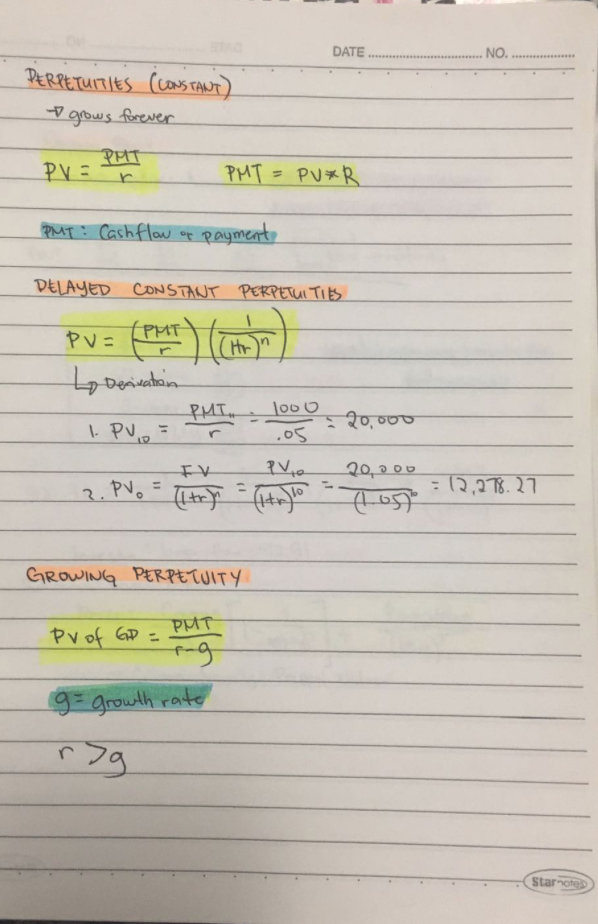 DATE ........................ NO. ................
PERPETUITIES (CONSTANT)
→ grows forever
PV = PMT/r PMT = PV*R
PMT: Cashflow or payment
DELAYED CONSTANT PERPETUITIES
PV = (PMT/r) (1/(1+r)^n)
↳ Derivation
1. PV₁₀ = PMT₁₁/r = 1000/.05 = 20,000
2. PV₀ = FV/(1+r)^n = PV₁₀/(1+r)^10 = 20,000/(1.05)^10 = 12,278.27
GROWING PERPETUITY
PV of GP = PMT/r-g
g = growth rate
r > g
Starnotes